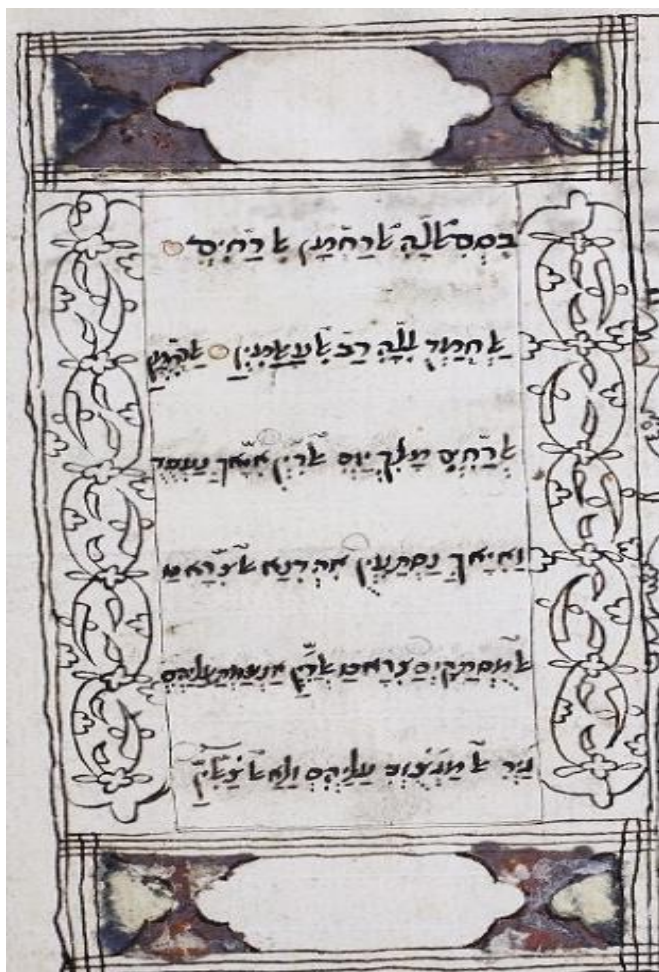 בסם ﭏלה ﭏרחמן ﭏרחים
ﭏחמד ללה רב ﭏעﭏמין ﭏרחמן
ﭏרחים מלך יום ﭏדין איאך נעבד
ואיאך נסתעין אהדנא ﭏצראט
ﭏמסתקים צראט ﭏדין אנעמת עליהם
גיר ﭏמגצוב עליהם ולא ﭏצﭏין